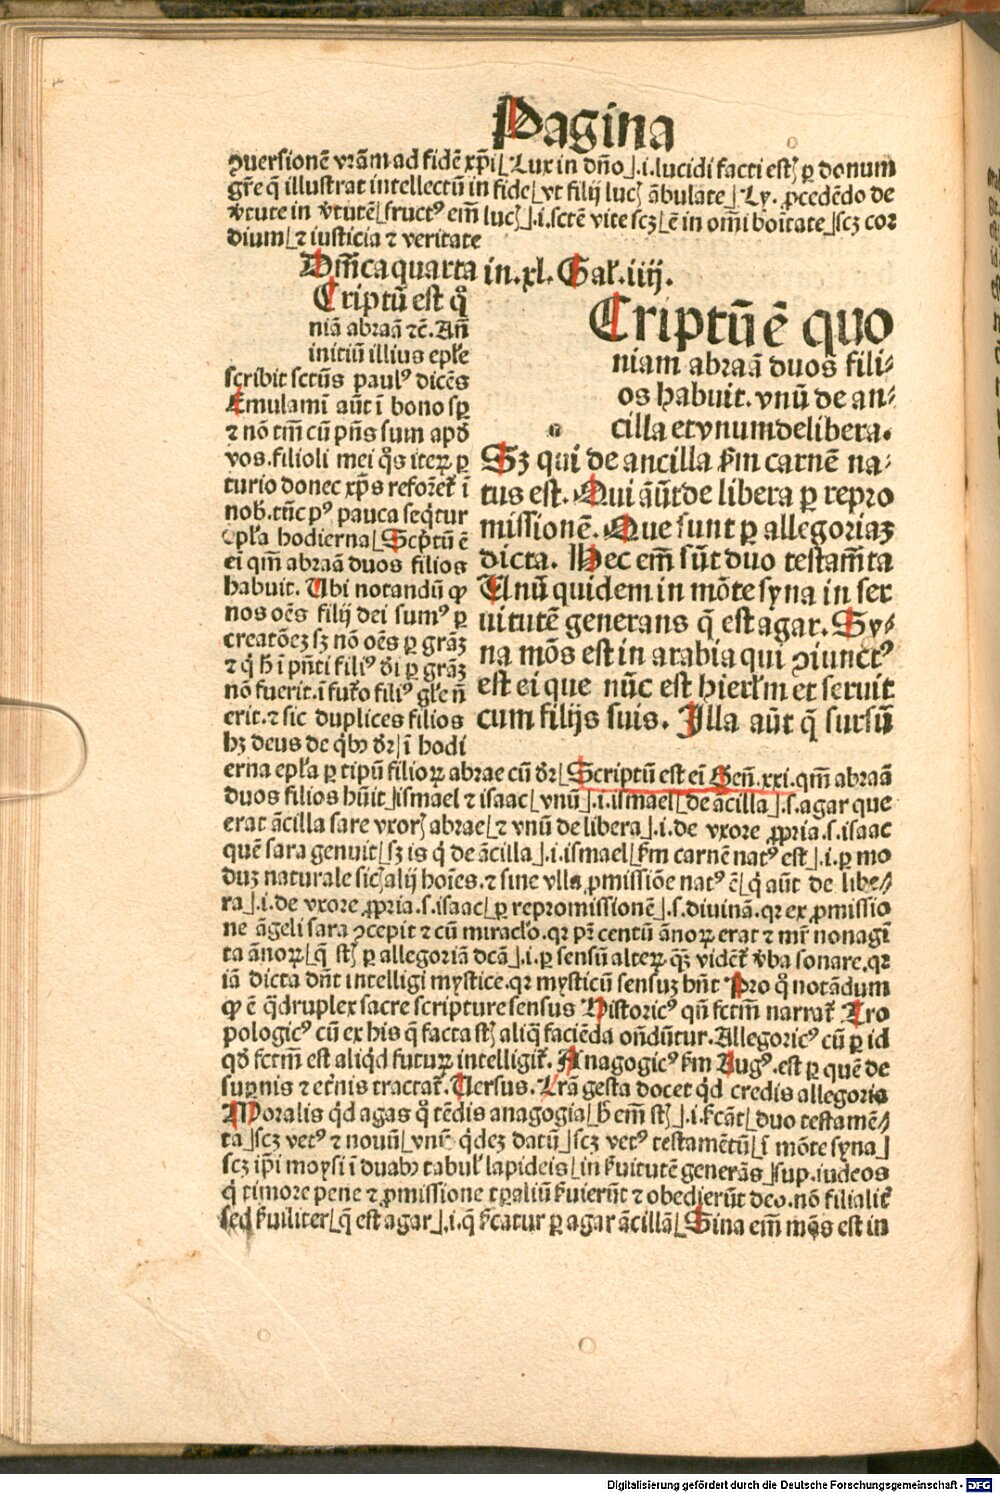 Pagina
ꝯuersionē vr̄am ad fidē xp̄i⌊Lux in dn̄o⌋.i.lucidi facti estꝭ ꝑ donum
gr̄e q̄ illustrat intellectū in fide⌊vt filij lucꝭ ābulate⌋Ly. ꝓcedēdo de
v̓tute in v̓tutē⌊fructꝰ em̄ lucꝭ⌋.i.sctē vite scꝫ⌊ē in om̄i boītate⌋scꝫ cor
dium⌊⁊ iusticia ⁊ veritate
Dm̄ca quarta in.xl. Gal̓.iiij.
Criptū est qm̄
niā abraā ⁊c̄. An̄
initiū illius ep̄le
scribit sctūs paulꝰ dicēs
Emulamī aūt ī bono sꝑ
⁊ nō tm̄ cū pn̄s sum apd̓
vos.filioli mei qͦs iteꝝ ꝑ
turio donec xp̄s reforet̓ ī
nob̓.tūc pꝰ pauca seqͥtur
ep̄la hodierna⌊Scpͥtū ē
ei qm̄ abraā duos filios
habuit. Ubi notandū ꝙ
nos oēs filij dei sumꝰ ꝑ
creatōeꝫ sꝫ nō oēs ꝑ grāꝫ
⁊ qͥ h̓ ī pn̄ti filiꝰ d̓i ꝑ grāꝫ
nō fuerit.ī fut̓o filiꝰ gl̓e n̄
erit.⁊ sic duplices filios
hꝫ deus de qͥbꝰ d̓r⌋ī hodi
Criptū ē quo
niam abraā duos fili⸗
os habuit. vnū de an⸗
cilla et vnum de libera.
Sꝫ qui de ancilla s̓m carnē na⸗
tus est. Qui aūt de libera ꝑ repro
missionē. Que sunt ꝑ allegoriaꝫ
dicta. Hec em̄ sūt duo testam̄ta
Unū quidem in mōte syna in ser
uitutē generans q̄ est agar. Sy⸗
na mōs est in arabia qui ꝯiunctꝰ
est ei que nūc est hierl̓m et seruit
cum filijs suis. Illa aūt q̄ sursū
erna ep̄la ꝑ tipū filioꝝ abrae cū d̓r⌊Scriptū est eī Gen̄.xxi.qm̄ abraā
duos filios hūit⌋ismael ⁊ isaac⌊vnū⌋.i.ismael⌊de ācilla⌋.s.agar que
erat ācilla sare vxorꝭ abrae⌊⁊ vnū de libera⌋.i.de vxore ꝓpria.s.isaac
quē sara genuit⌊sꝫ is qͥ de ācilla⌋.i.ismael⌊s̓m carnē natꝰ est⌋.i.ꝑ mo
duꝫ naturale sicꝭ alij hoīes.⁊ sine vlla ꝓmissiōe natꝰ ē⌊qͥ aūt de libe⸗
ra⌋.i.de vxore ꝓpria.s.isaac⌊ꝑ repromissionē⌋.s.diuinā.qꝛ ex ꝓmissio
ne āgeli sara ꝯcepit ⁊ cū miracl̓o.qꝛ pr̄ centū ānoꝝ erat ⁊ mr̄ nonagī
ta ānoꝝ⌊q̄ stꝭ ꝑ allegoriā dcā⌋.i.ꝑ sensū alteꝝ qͣꝫ vidēt̓ v̓ba sonare.qꝛ
iā dicta dn̄t intelligi mystice.qꝛ mysticū sensuꝫ hn̄t Pro qͦ notādum
ꝙ ē qͣdruplex sacre scripture sensus Historicꝰ qn̄ fctm̄ narrat̓ Tro
pologicꝰ cū ex his q̄ facta stꝭ aliq̄ faciēda on̄dūtur.Allegoricꝰ cū ꝑ id
qd̓ fctm̄ est aliqͥd futuꝝ intelligit̓. Anagogicꝰ s̓m Augꝰ.est ꝑ quē de
suꝑnis ⁊ et̓nis tractat̓. Uersus. Lr̄a gesta docet qͥd credis allegoria
Moralis qͥd agas qͦ tēdis anagogia⌊h̓ em̄ stꝭ⌋.i.s̓cāt⌊duo testamē⸗
ta⌋scꝫ vetꝰ ⁊ nouū⌊vnū qͥdeꝫ datū⌋scꝫ vetꝰ testamētū⌊ī mōte syna⌋
scꝫ ip̄i moysi ī duabꝰ tabul̓ lapideis⌊in s̓uitutē generās⌋sup.iudeos
qͥ timore pene ⁊ ꝓmissione tꝑaliū s̓uierūt ⁊ obedierūt deo.nō filialit̓
sed s̓uiliter⌊q̄ est agar⌋.i.q̄ s̓catur ꝑ agar ācillā⌊Sina em̄ mōs est in
Digitalisierung gefördert durch die Deutsche Forschungsgemeinschaft - DFG